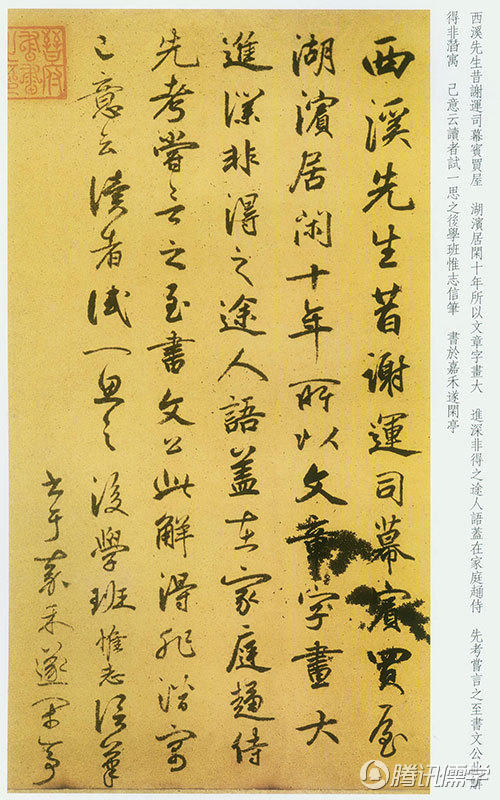 西溪先生昔謝運司幕賓買屋 湖濱居閑十年所以文章字畫大 進深非得之途人語蓋在家庭趨侍 先考嘗言之至書文公此解
得非潛寓 己意云讀者試一思之後學班惟志信筆 書於嘉禾遂閑亭
西溪先生昔謝運司幕賓買屋
湖濱居閑十年所以文章字畫大
進深非得之途人語蓋在家庭趨侍
先考嘗言之至書文公此解得非潛寓
己意云讀者試一思之後學班惟志信筆
書于嘉禾遂閑亭
腾讯儒学